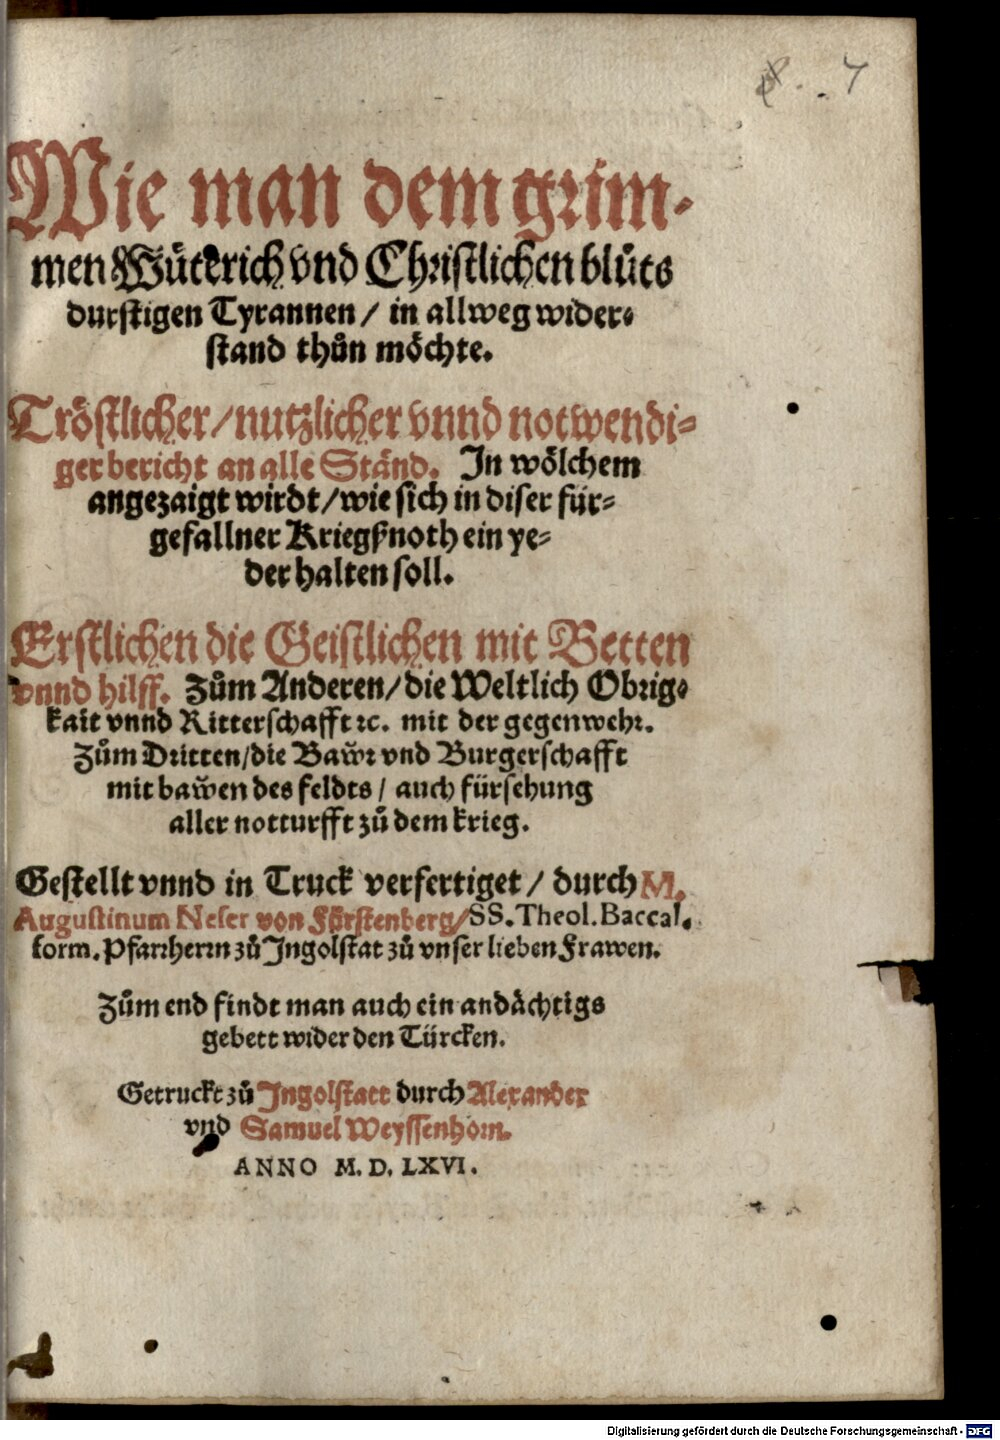 7
Wie man dem grim-
men Wüttrich vnd Christlichen blůts
durstigen Tyrannen / in allweg wider-
stand thůn möchte.
Tröstlicher / nutzlicher vnnd notwendi-
ger bericht an alle Ständ. In wölchem
angezaigt wirdt / wie sich in diser für-
gefallner Kriegßnoth ein ye-
der halten soll.
Erstlichen die Geistlichen mit Betten
vnnd hilff. Zům Anderen / die Weltlich Obrig-
kait vnnd Ritterschafft ꝛc. mit der gegenwehr.
Zům Dritten / die Baẘr vnd Burgerschafft
mit baẘen des feldts / auch fürsehung
aller notturfft zů dem krieg.
Gestellt vnnd in Truck verfertiget / durch M.
Augustinum Neser von Fürstenberg / SS. Theol. Baccal.
form. Pfarrherrn zů Ingolstat zů vnser lieben Frawen.
Zům end findt man auch ein andächtigs
gebett wider den Türcken.
Getruckt zů Ingolstatt durch Alexander
vnd Samuel Weyssenhorn.
ANNO M. D. LXVI.
Digitalisierung gefördert durch die Deutsche Forschungsgemeinschaft - DFG